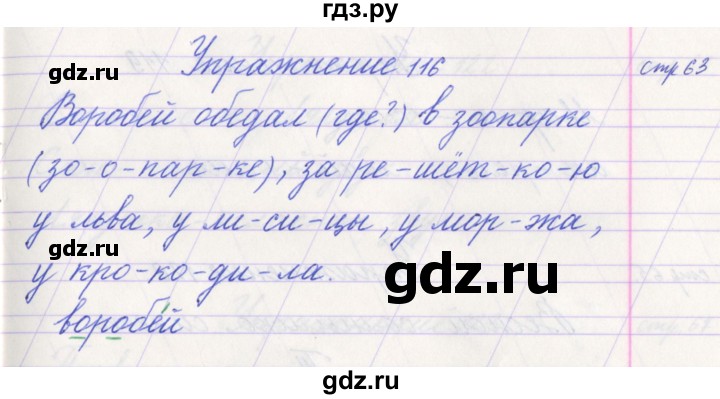 гдз.ру
Упражнение 116 стр 63
gdz.ru
Воробей обедал (где?) в зоопарке
(зо-о-пар-ке), за ре-шёт-ко-ю
gdz.ru
у льва, у ли-си-цы, у мор-жа,
gdz.ru
у кро-ко-ди-ла.
gdz.ru
воробей
gdz.ru